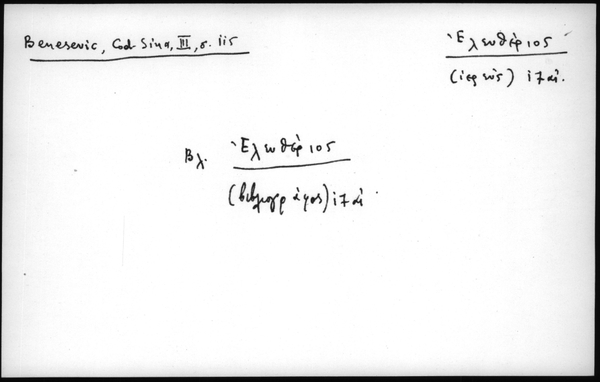 Benesevic, Cod. Sina, III, σ. 115
Ἐλευθέριος
(ἱερεύς) 17 αἰ.
Βλ. Ἐλευθέριος
(βιβλιογράφος) 17 αἰ.